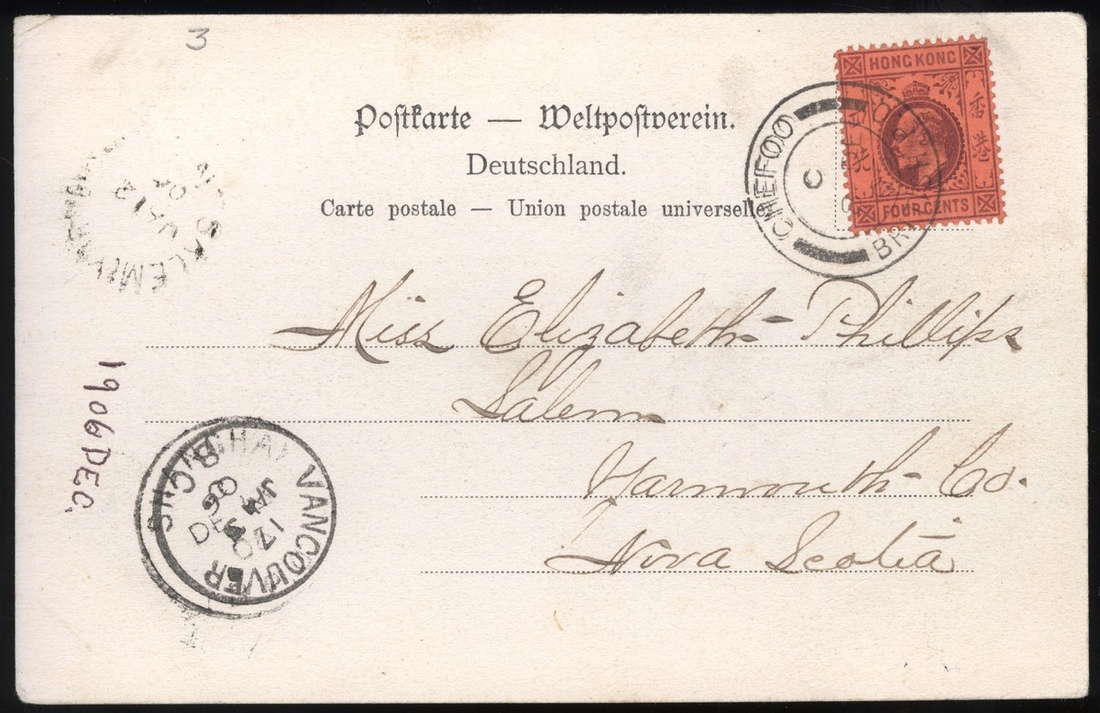 3
HONG KONG
香港
FOUR CENTS
Postkarte — Weltpostverein.
Deutschland.
Carte postale — Union postale universelle
CHEFOO
BR
SALEM
JA 13
07
Miss Elizabeth Phillips
Salem
Yarmouth Co.
Nova Scotia
1906 DEC.
VANCOUVER
B.C.
JA
07
SHANGHAI
DE
06